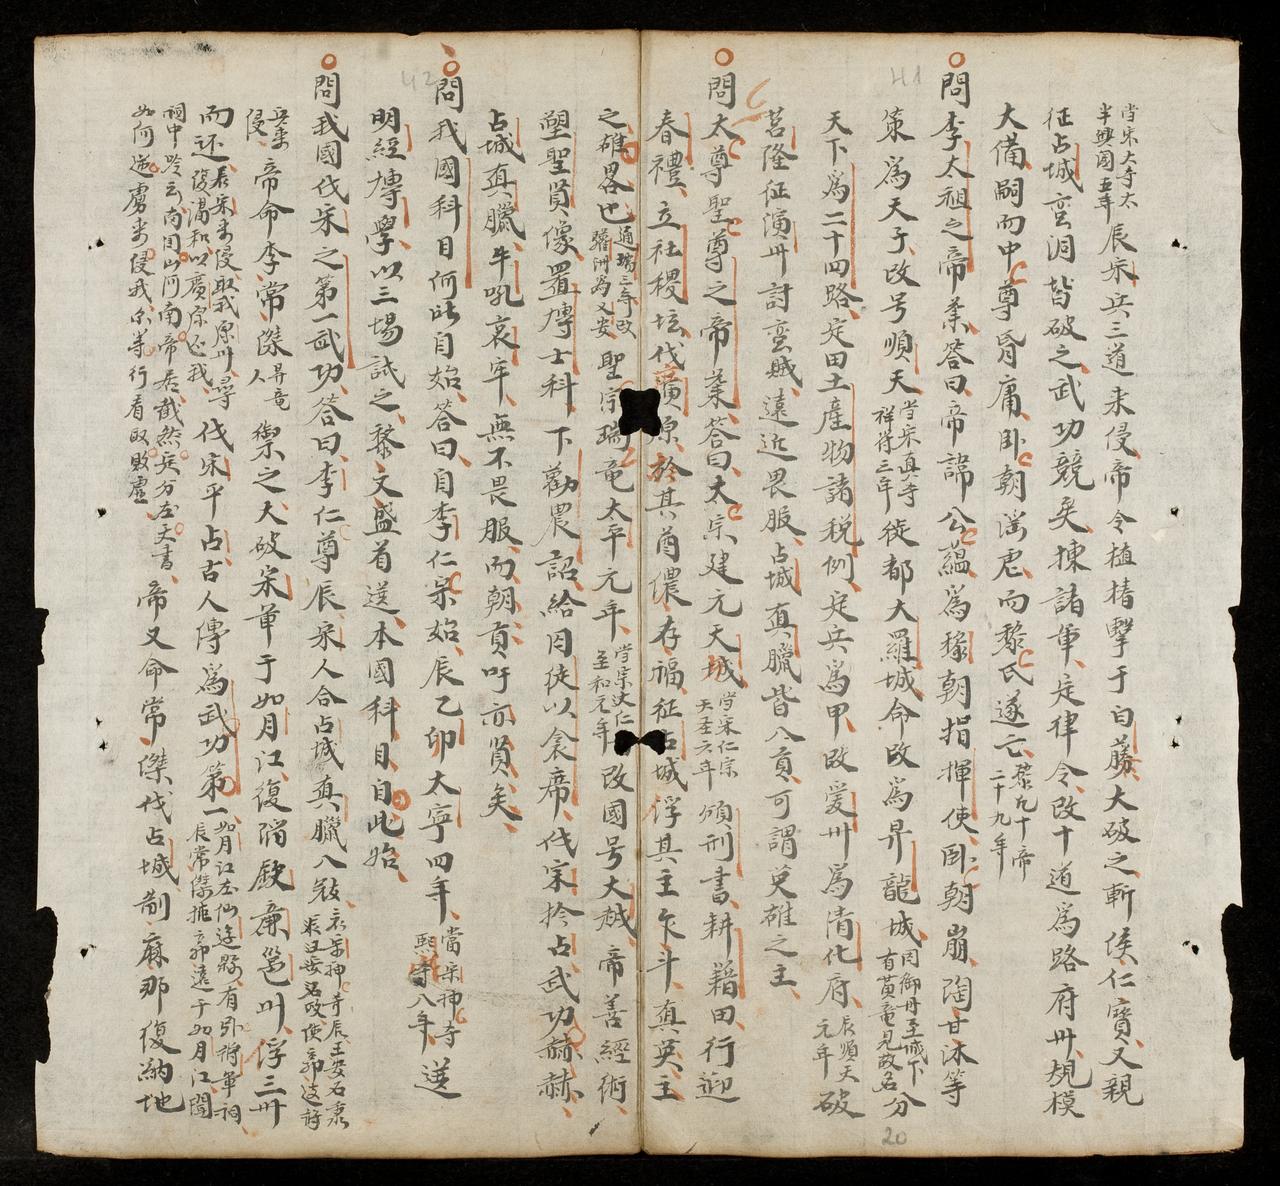 當宋太宗太
平興国五年
辰宋兵三道来侵帝令植樁擊于白藤大破之斬侯仁寶又親
征占城蛮洞皆破之武功競矣揀諸軍定律令改十道為路府州規模
大備嗣而中尊昏庸卧朝滛虐而黎氏遂亡黎九十帝
二十九年
問李太祖之帝業答曰帝諱公蘊為黎朝指揮使卧朝崩陶甘沐等
策為天子改号順天當宋真宗
祥符三年徙都大羅城命改為昇龍城因御舟至城下
有黃竜見故名分
天下為二十四路定田土產物諸稅例定兵為甲改爱州為清化府辰順天
元年破
莒隆征演州討蛮賊遠近畏服占城真臘皆入貢可謂英雄之主
問太尊聖尊之帝業答曰太宗建元天城當宋仁宗
天圣六年頒刑書耕籍田行迎
春禮立社稷坛伐廣原於其酋儂存福征占城俘其主乍斗真英主
之雄畧也通瑞三年改
驩洲為乂安聖宗瑞竜太平元年當宋仁
至和元年改國号大越帝善經術
塑聖賢像置博士科下勸農詔給囚徒以衾席伐宋擒占武功赫赫
占城真臘牛吼哀牢無不畏服而朝貢吁亦賢矣
問我國科目何昉自始答曰自李仁宗始辰乙卯大寧四年當宋神宗
熙寧八年選
明經博學以三場試之黎文盛首選本國科目自此始
問我國伐宋之第一武功答曰李仁尊辰宋人合占城真臘入敍宋神宗辰王安石秉
兵来
侵帝命李常傑昇竜
人禦之大破宋軍于如月江復攻欽廉邕州俘三州
而还後宋来侵取我原州尋
復講和以廣原还我伐宋平占古人傳為武功第一如月江在仙遊縣有引將軍祠
辰常傑拒郭逵于如月江聞
祠中吟云南国山河南帝居截然定分在天書
如何逆虜来侵我尔等行看取敗虛帝又命常傑伐占城制麻那復納地